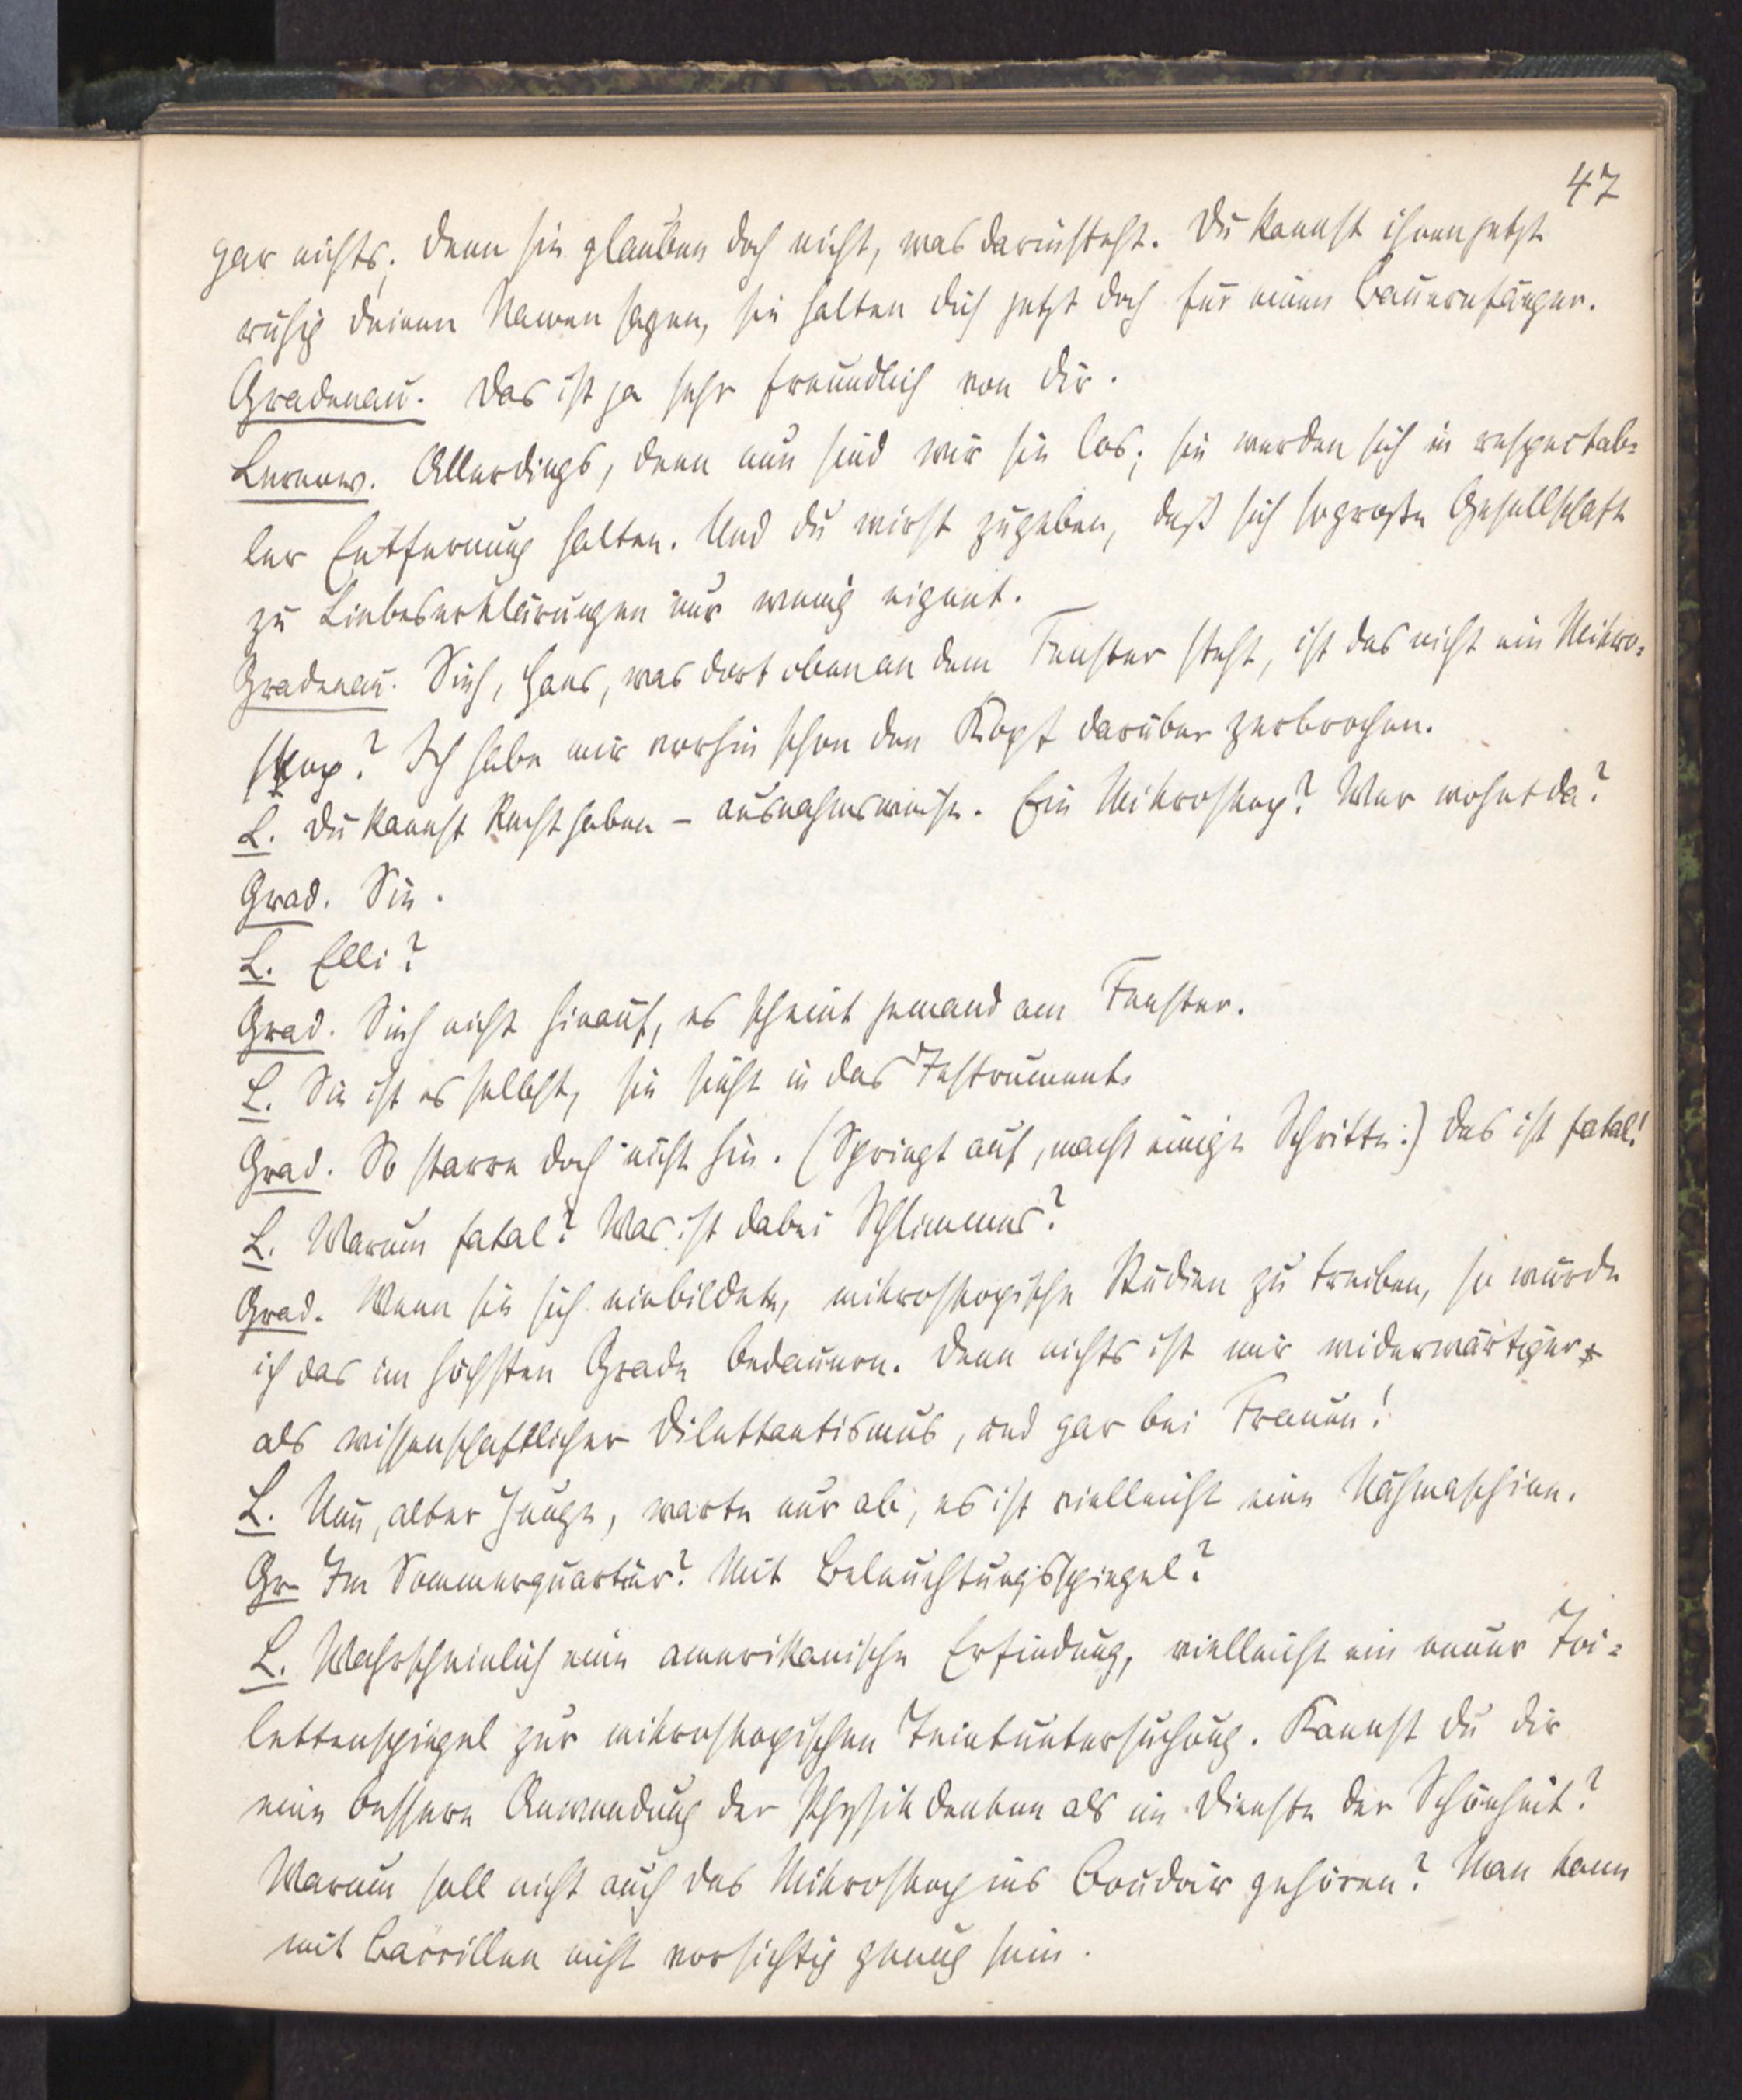 47
gar nichts; denn sie glauben doch nicht, was darinsteht. Du kannst ihnen jetzt
ruhig deinen Namen sagen, sie halten dich jetzt doch für einen Bauernfänger.
Gradenau. Das ist ja sehr freundlich von dir.
Lernow. Allerdings, denn nun sind wir sie los; sie werden sich in respectab-
ler Entfernung halten. Und du wirst zugeben, daß sich so große Gesellschaft
zu Liebeserklärungen nur wenig eignet.
Gradenau. Sieh, Hans, was dort oben an dem Fenster steht, ist das nicht ein Mikro-
skop? Ich habe mir vorhin schon den Kopf darüber zerbrochen.
L. Du kannst Recht haben – ausnahmsweise. Ein Mikroskop? Wer wohnt da?
Grad. Sie.
L. Elli?
Grad. Sieh nicht hinauf, es scheint jemand am Fenster.
L. Sie ist es selbst, sie sieht in das Instrument.
Grad. So starre doch nicht hin. (Springt auf, macht einige Schritte.) Das ist fatal!
L. Warum fatal? Was ist dabei Schlimmes?
Grad. Wenn sie sich einbildete, mikroskopische Studien zu treiben, so würde
ich das im höchsten Grade bedauern. Denn nichts ist mir widerwärtiger
als wissenschaftlicher Dilettantismus, und gar bei Frauen!
L. Nun, alter Junge, warte nur ab, es ist vielleicht eine Nähmaschine.
Gr Im Sommerquartier? Mit Beleuchtungsspiegel?
L. Wahrscheinlich eine amerikanische Erfindung, vielleicht ein neuer Toi-
lettenspiegel zur mikroskopischen Teintuntersuchung. Kannst du dir
eine bessere Anwendung der Physik denken als im Dienste der Schönheit?
Warum soll nicht auch das Mikroskop ins Boudoir gehören? Man kann
mit Bacillen nicht vorsichtig genug sein.